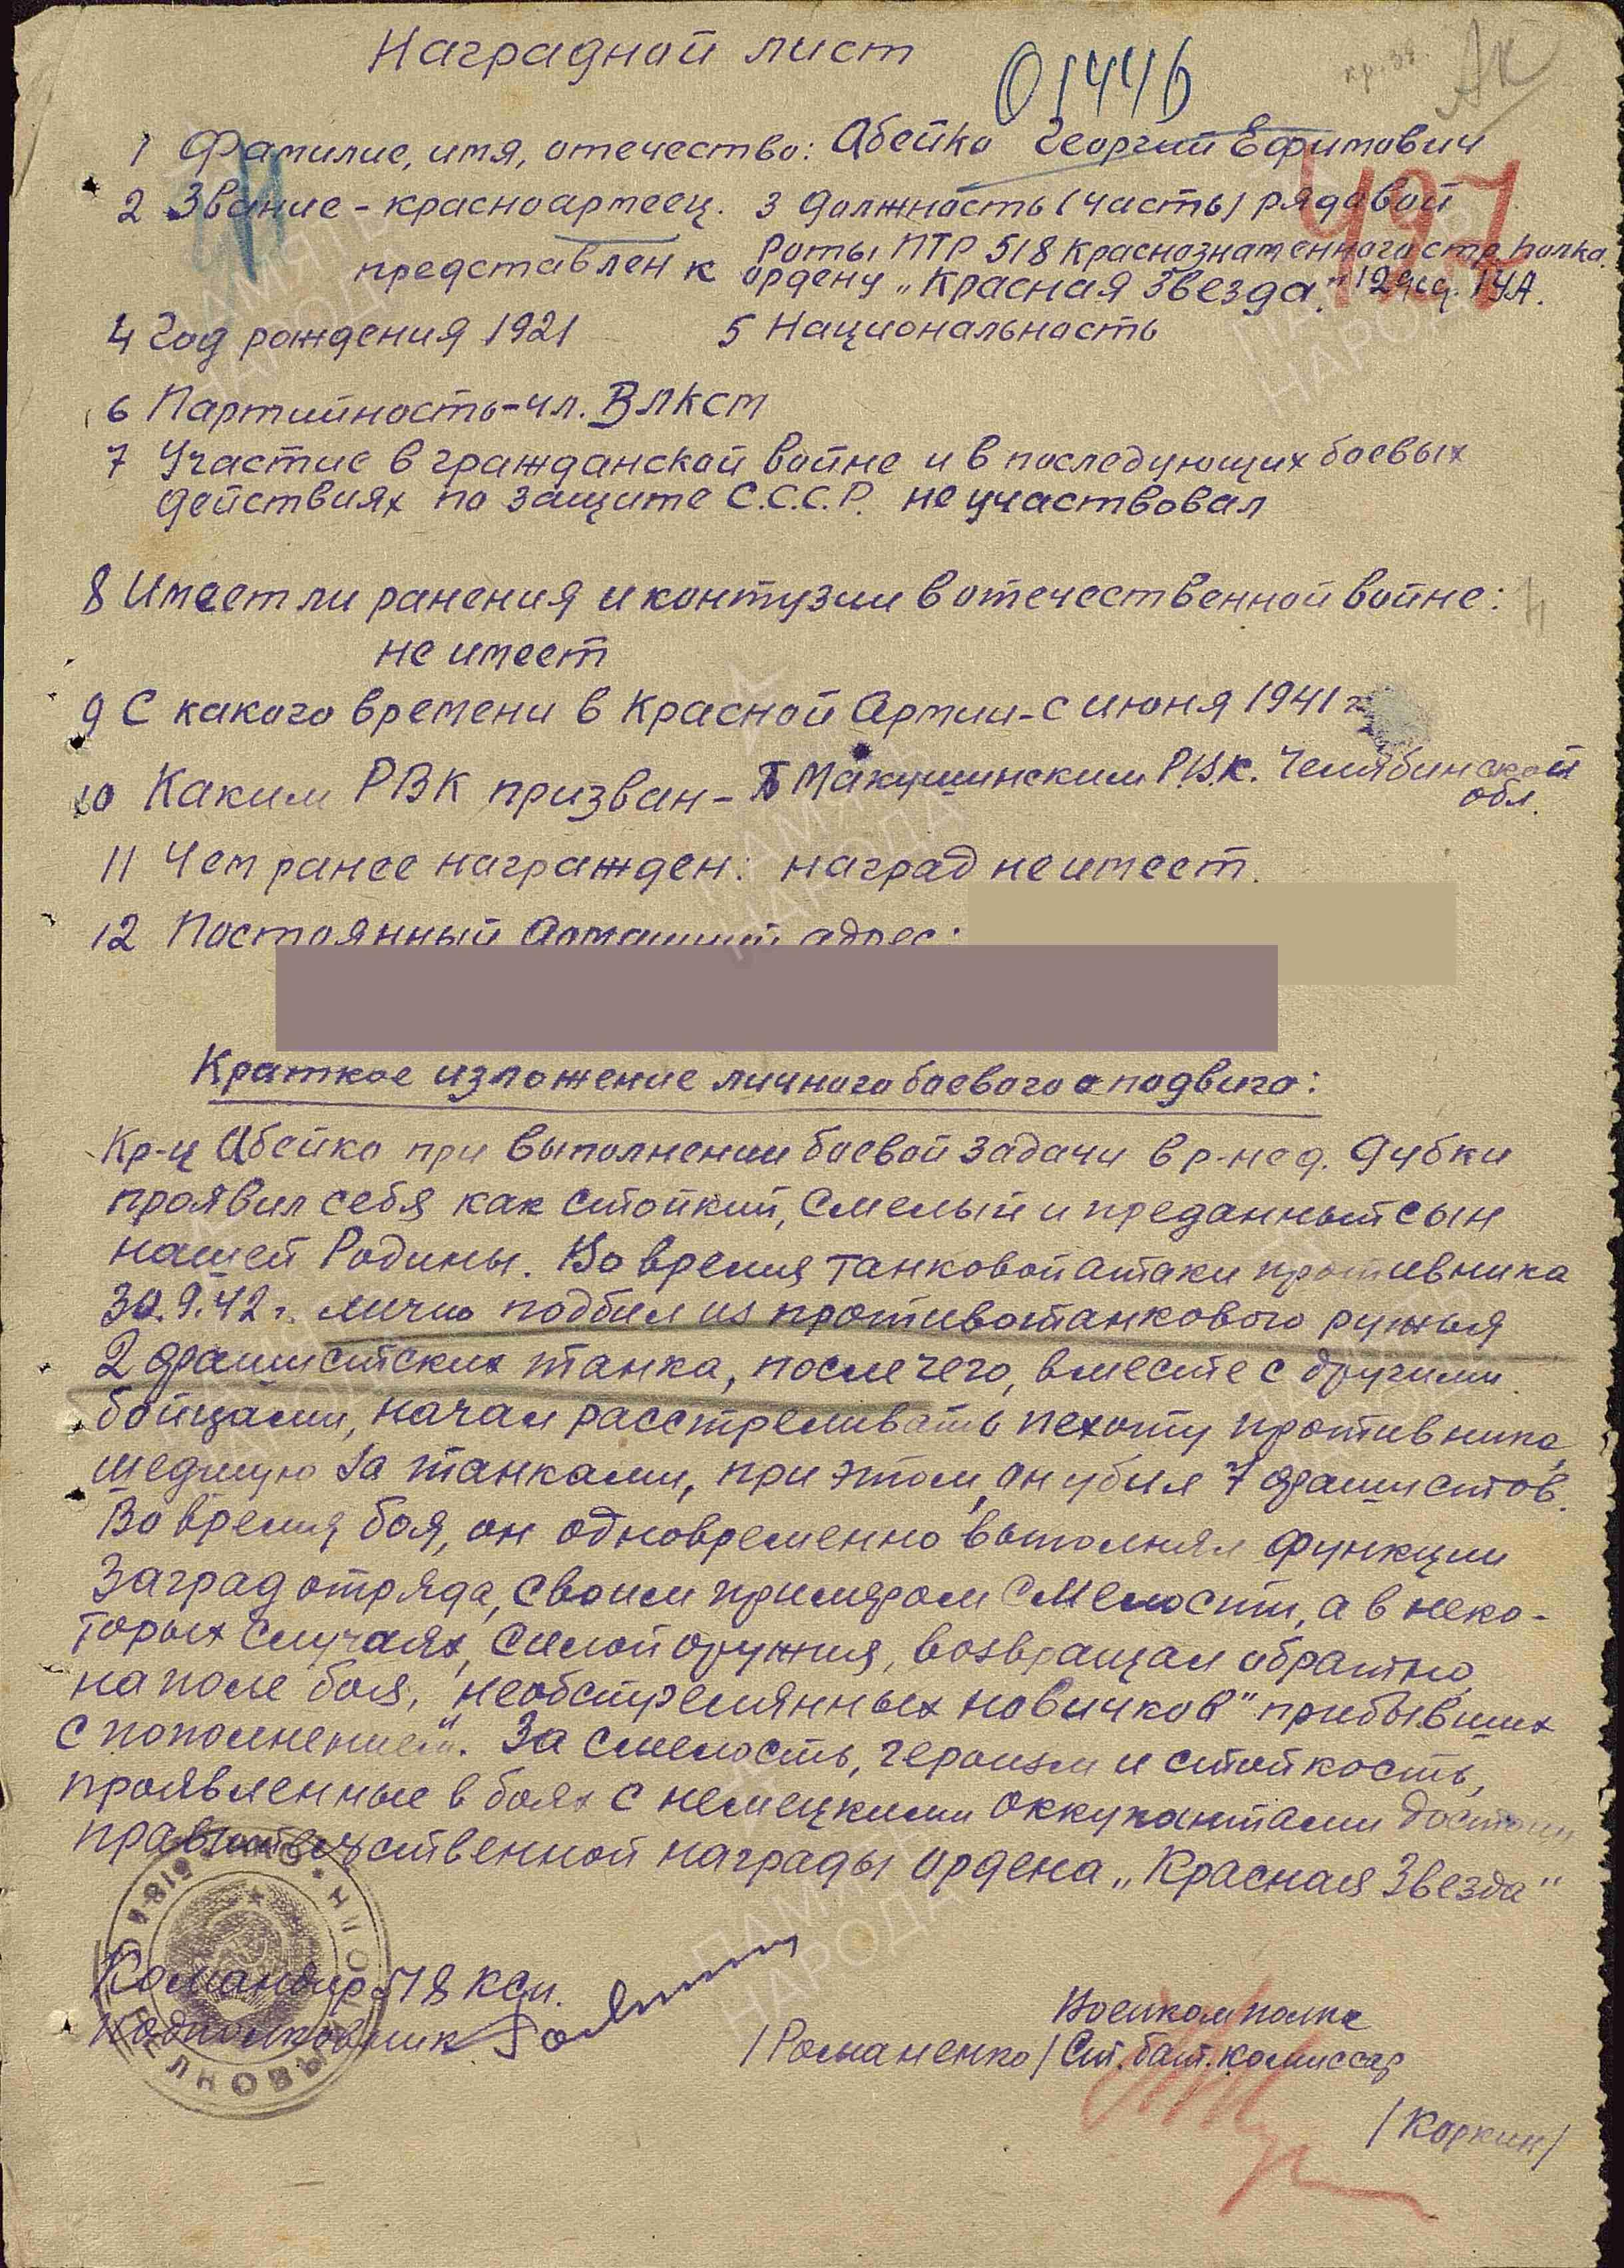 Наградной лист
01446
кр. зв.
1 Фамилие, имя, отечество: Абейко Георгий Ефимович
497
2 Звание - красноармеец. 3 Должность (часть) рядовой
роты ПТР 518 Краснознаменного стр. полка
представлен к ордену „Красная Звезда".
4 Год рождения 1921 5 Национальность
6 Партийность - чл. ВЛКСМ
7 Участие в гражданской войне и в последующих боевых
действиях по защите С.С.С.Р. не участвовал
8 Имеет ли ранения и контузии в отечественной войне:
не имеет
9 С какого времени в Красной Армии - с июня 1941 г.
10 Каким РВК призван - Макушинским Р.В.К. Челябинской
обл.
11 Чем ранее награжден: наград не имеет.
12 Постоянный домашний адрес:
Краткое изложение личного боевого подвига:
Кр-ц Абейко при выполнении боевой задачи в р-не д. Дубки
проявил себя как стойкий, смелый и преданный сын
нашей Родины. Во время танковой атаки противника
30.9.42 г. лично подбил из противотанкового ружья
2 фашистских танка, после чего, вместе с другими
бойцами, начал расстреливать пехоту противника,
шедшую за танками, при этом, он убил 7 фашистов.
Во время боя, он одновременно выполнял функции
Заградотряда, своим примером смелости, а в неко-
торых случаях, силой оружия, возвращал обратно,
на поле боя, "необстрелянных новичков" прибывших
с пополнением". За смелость, героизм и стойкость,
проявленные в боях с немецкими оккупантами достоин
правительственной награды ордена „Красная Звезда"
Командир 518 ксп.
Подполковник
/Романенко/
Военком полка
Ст. бат. комиссар
/Коркин/
ПАМЯТЬ
НАРОДА